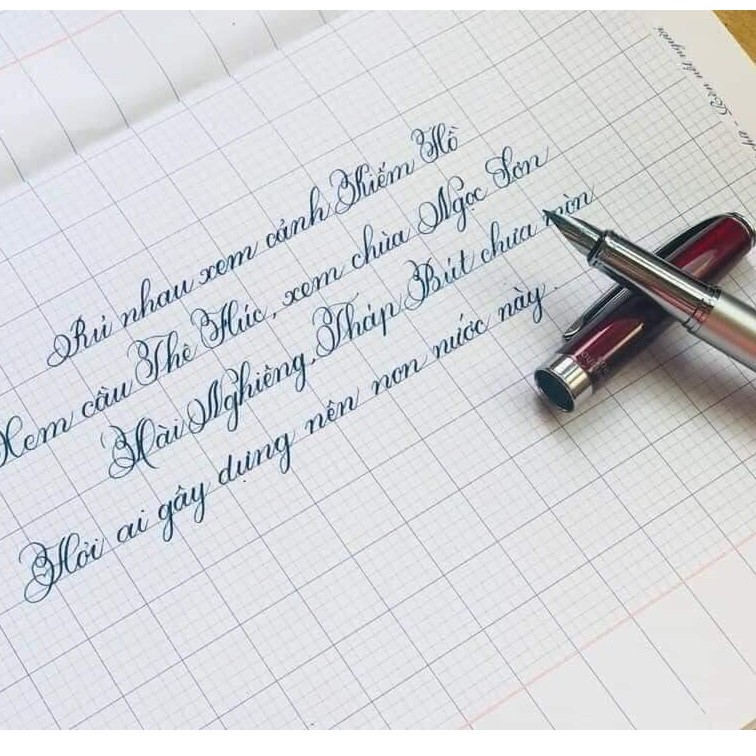 Rủ nhau xem cảnh Kiếm Hồ
Xem cầu Thê Húc, xem chùa Ngọc Sơn
Đài Nghiêng, Tháp Bút chưa mòn
Hỏi ai gây dựng nên non nước này.
chữ - Rèn nết người